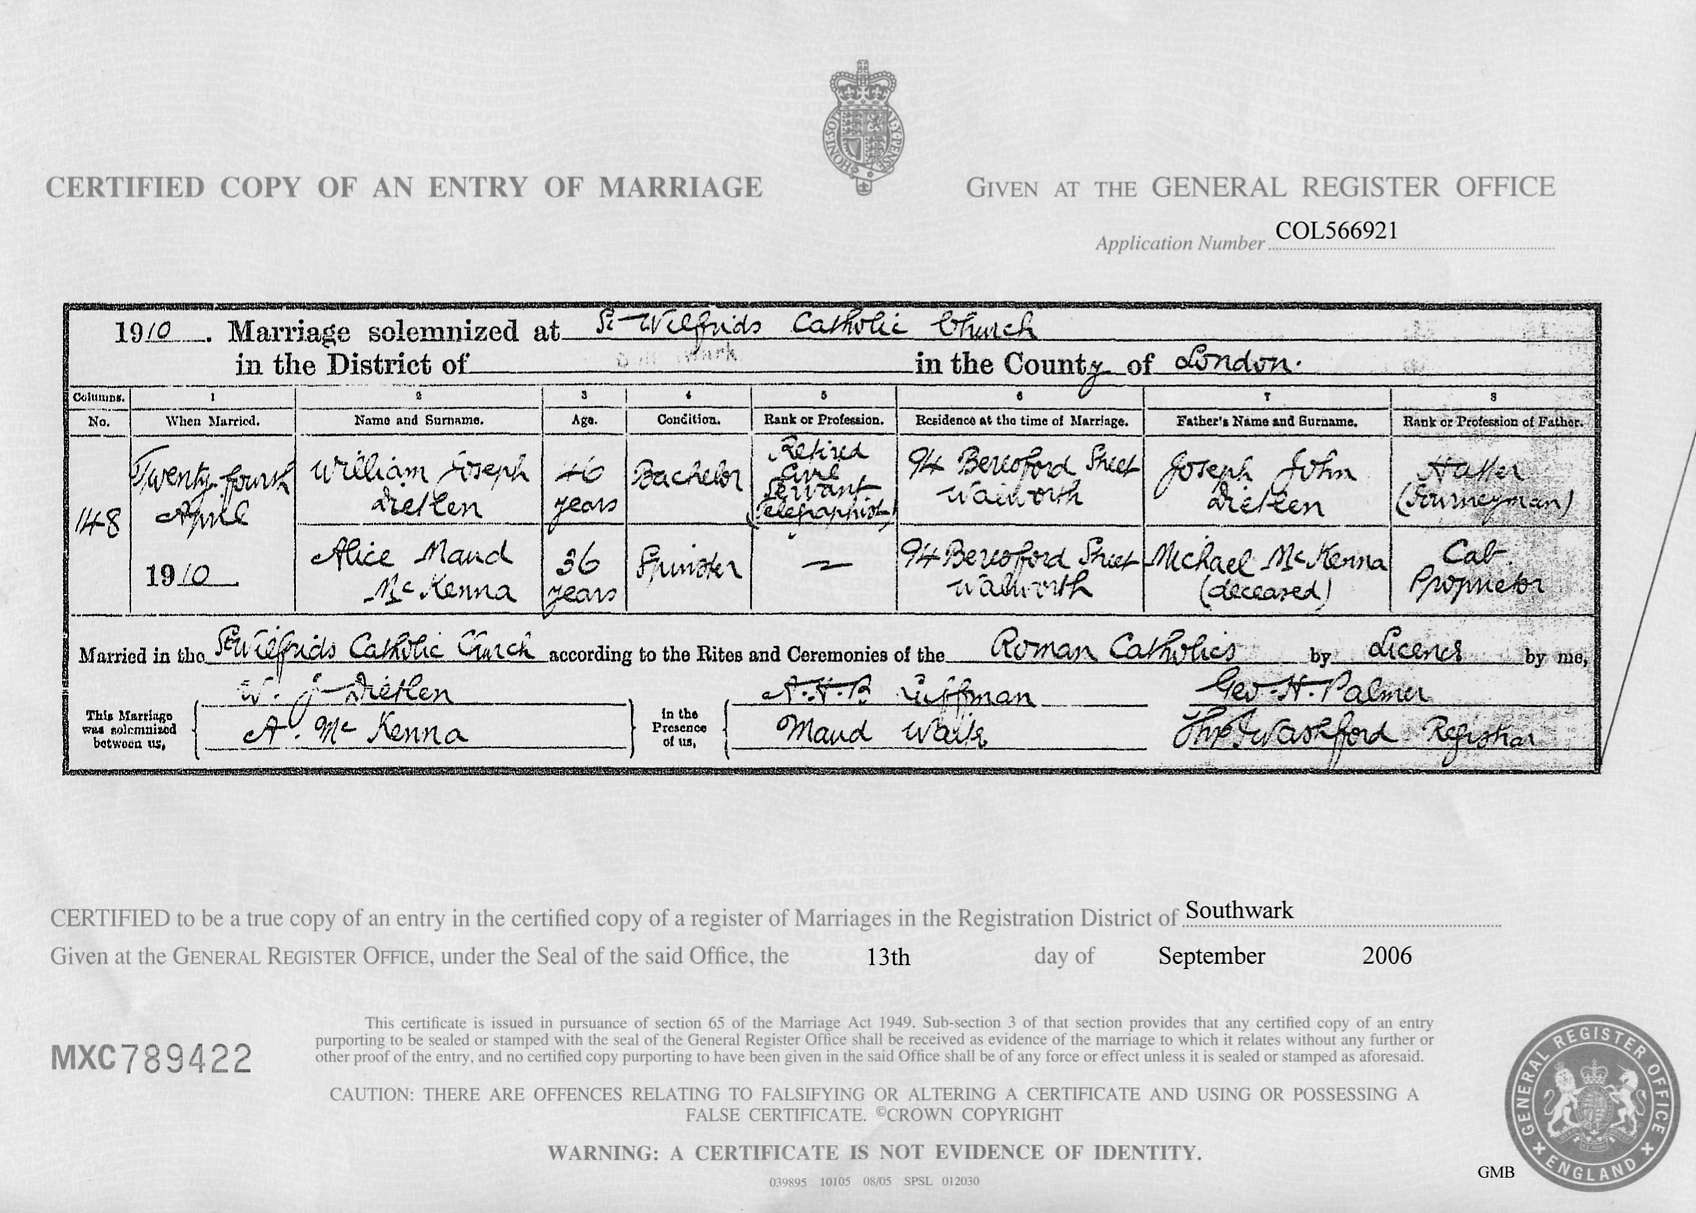 HONI SOIT QUI MAL Y PENSE
CERTIFIED COPY OF AN ENTRY OF MARRIAGE
GIVEN AT THE GENERAL REGISTER OFFICE
Application Number COL566921
1910. Marriage solemnized at St Wilfrids Catholic Church
in the District of Southwark in the County of London.
Columns. 1 2 3 4 5 6 7 8
No. When Married. Name and Surname. Age. Condition. Rank or Profession. Residence at the time of Marriage. Father's Name and Surname. Rank or Profession of Father.
148 Twenty fourth April 1910
William Joseph Dietlen 46 years Bachelor Retired Civil Servant (Telegraphist) 94 Beresford Street Walworth Joseph John Dietlen Hatter (Journeyman)
Alice Maud McKenna 36 years Spinster — 94 Beresford Street Walworth Michael McKenna (deceased) Cab Proprietor
Married in the St Wilfrids Catholic Church according to the Rites and Ceremonies of the Roman Catholics by Licence by me,
This Marriage was solemnized between us,
W. J. Dietlen
A. McKenna
In the Presence of us,
A. H. B. Luffman
Maud Waite
Geo. H. Palmer
Washford Registrar
CERTIFIED to be a true copy of an entry in the certified copy of a register of Marriages in the Registration District of Southwark
Given at the GENERAL REGISTER OFFICE, under the Seal of the said Office, the 13th day of September 2006
This certificate is issued in pursuance of section 65 of the Marriage Act 1949. Sub-section 3 of that section provides that any certified copy of an entry
purporting to be sealed or stamped with the seal of the General Register Office shall be received as evidence of the marriage to which it relates without any further or
other proof of the entry, and no certified copy purporting to have been given in the said Office shall be of any force or effect unless it is sealed or stamped as aforesaid.
MXC 789422
CAUTION: THERE ARE OFFENCES RELATING TO FALSIFYING OR ALTERING A CERTIFICATE AND USING OR POSSESSING A
FALSE CERTIFICATE. ©CROWN COPYRIGHT
WARNING: A CERTIFICATE IS NOT EVIDENCE OF IDENTITY.
039895 10105 08/05 SPSL 012030
GMB
GENERAL REGISTER OFFICE
ENGLAND